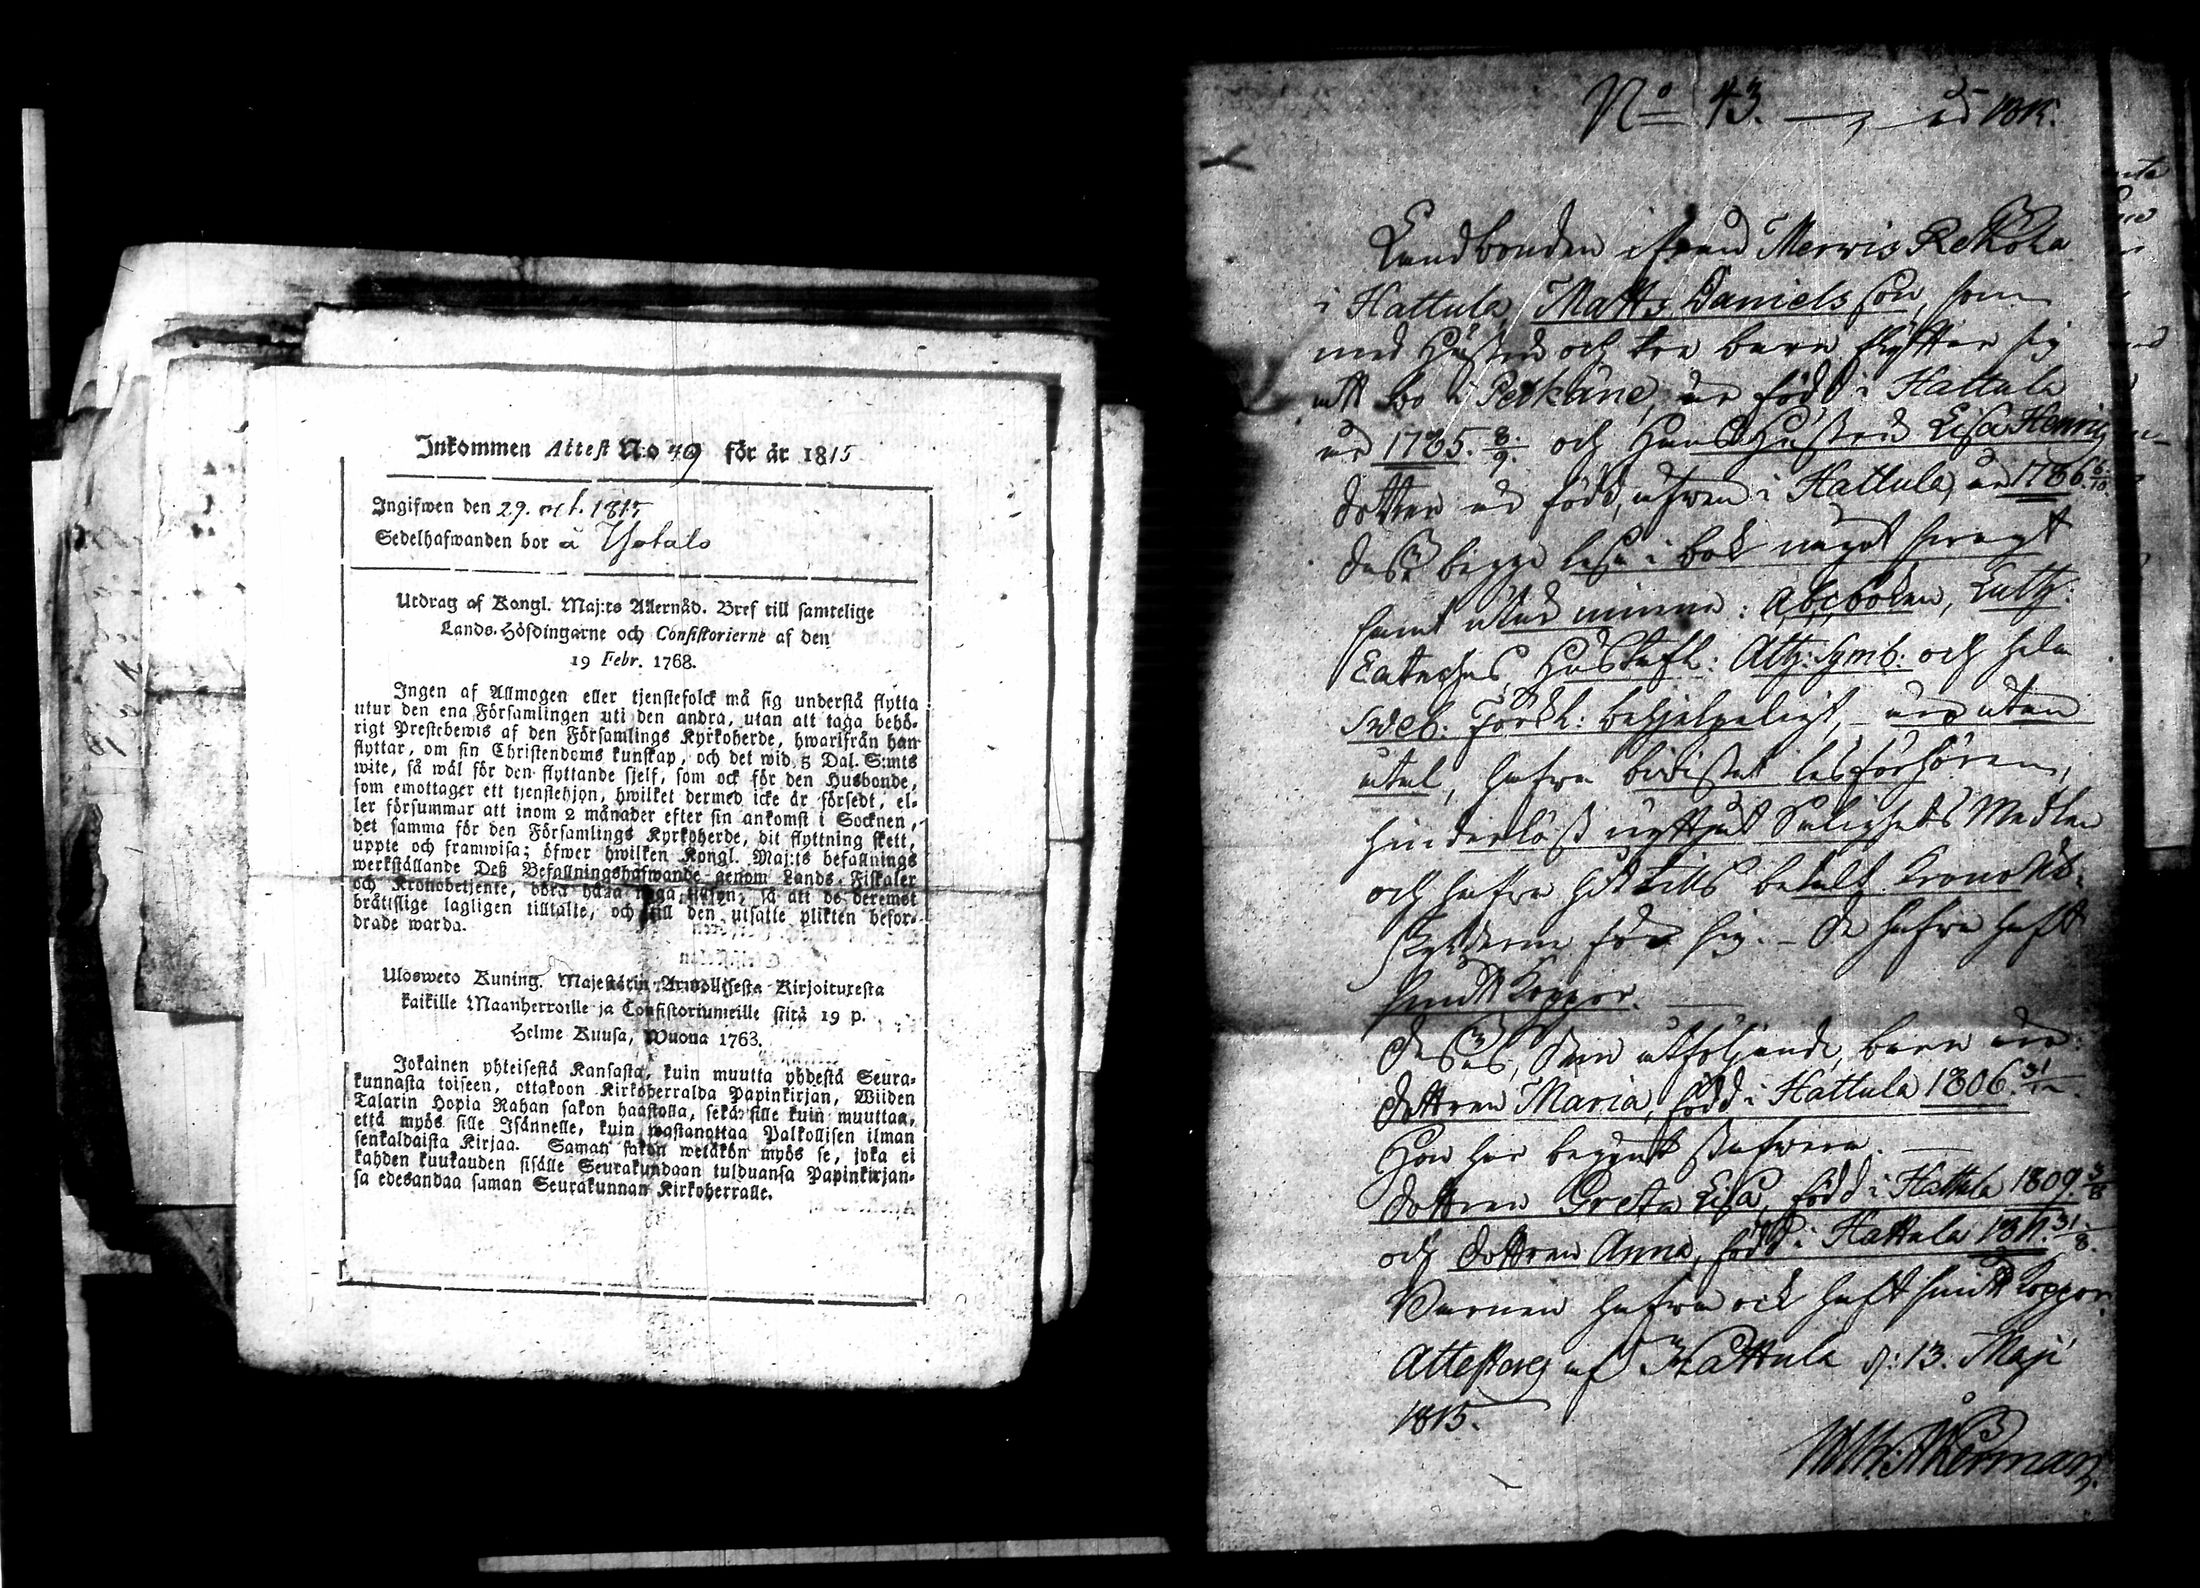 Inkommen Attest N:o 49 för år 1815
Ingifwen den 29. oct. 1815
Sedelhafwanden bor å
Utdrag af Kongl. Maj:ts Allernåd. Bref till samtelige
Lands-Höfdingarne och Consistorierne af den
19 Febr. 1768.
Ingen af Allmogen eller tjenstefolck må sig understå flytta
utur den ena Församlingen uti den andra, utan att taga behö-
rigt Prestebewis af den Församlings Kyrkoherde, hwarifrån han
flyttar, om sin Christendoms kunskap, och det wid 5 Dal. S:mts
wite, så wäl för den flyttande sjelf, som ock för den Husbonde,
som emottager ett tjenstehjon, hwilket dermed icke är försedt, el-
ler försummar att inom 2 månader efter sin ankomst i Socknen,
det samma för den Församlings Kyrkoherde, dit flyttning skett,
uppte och framwisa; öfwer hwilken Kongl. Maj:ts befallnings
werkställande Deß Befallningshafwande genom Lands-Fiskaler
och Kronobetjente, böra hafwa noga tillsyn, så att de deremot
bråttslige lagligen tilltalte, och till den utsatte plikten befor-
drade warda.
Ulosweto Kuning. Majestätin Armollisesta Kirjoituxesta
kaikille Maanherroille ja Consistoriumeille siitä 19 p.
Helme Kuusa, Wuona 1763.
Jokainen yhteisestä Kansasta, kuin muutta yhdestä Seura-
kunnasta toiseen, ottakoon Kirkoherralda Papinkirjan, Wiiden
Talarin Hopia Rahan sakon haastolla, sekä sille kuin muuttaa,
että myös sille Isännelle, kuin wastanottaa Palkollisen ilman
senkaldaista Kirjaa. Saman sakon wetäkön myös se, joka ei
kahden kuukauden sisälle Seurakundaan tulduansa Papinkirjan-
sa edesandaa saman Seurakunnan Kirkoherralle.
N:o 43. — 1815.
Landbonden ifrån Merwis Rekkola
i Hattula, Matts Danielsson, som
med Hustru och tre barn flyttar sig
att bo i Pelkäne, är född i Hattula
år 1785. 8/9. och Hans Hustru Lisa Henrics
dotter är född, äfwen i Hattula, år 1786. 6/10.
Desse begge läsa i bok något swagt
samt utur minne: Abcboken, Luth:
Cateches, Hustafl: Ath: Symb: och hela
Sveb: Förkl: behjelpeligt, — äro utan
åtal, hafwa biwistat läsförhören,
hinderlöst nyttjat Salighets Medlen
och hafwa hit tills betalt Krono Ut-
skylderna för sig. — De hafwa haft
Smittkoppor. —
Desses, dem åtföljande, barn äro:
dottren Maria, född i Hattula 1806. 31/12.
Hon har begynt stafwa. —
dottren Greta Lisa, född i Hattula 1809. 3/8
och dottren Anna, född i Hattula 1811. 31/8.
Barnen hafwa ock haft Smittkoppor.
Attesteras af Hattula d: 13. Maji
1815.
Åkerman.